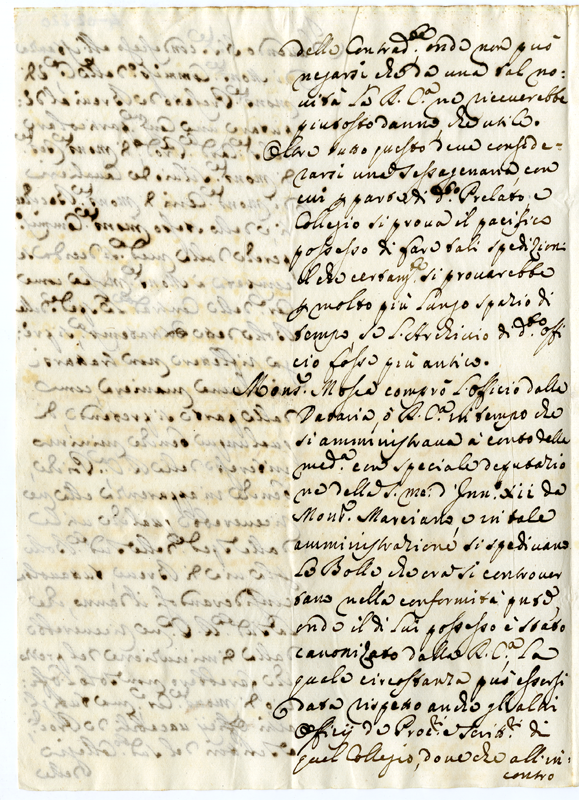 delle Contrad.e onde non può
negarsi che da una tal no-
uità la R. C.a ne riceuerebbe
piutosto danno, che utile.
Oltre tutto questo deue conside-
rarsi una sessagenaria, con
cui p parte di d.o Prelato, e
Collegio si proua il pacifico
possesso di fare tali spedizioni
il che certam.e si prouarebbe
p molto più lungo spazio di
tempo, se l'Archiuio di d.o offi
cio fosse più antico.
Mons.r Mosca comprò l'officio dalla
Dataria, ò R. C.a in tempo che
si amministraua à conto della
med.a con speciale deputazio
ne della S. me. d'Inn. XII da
Mons.r Marciano, e in tale
amministrazione si spediuano
Le Bolle, che ora si controuer
tano nella conformità
onde il di lui possesso è stato
canonizato dalla R. C.a, La
quale circostanza può essersi
data rispetto anche gl'altri
Officij de Proc.i e Scritt.i di
quel Collegio, doue che all'in-
contro